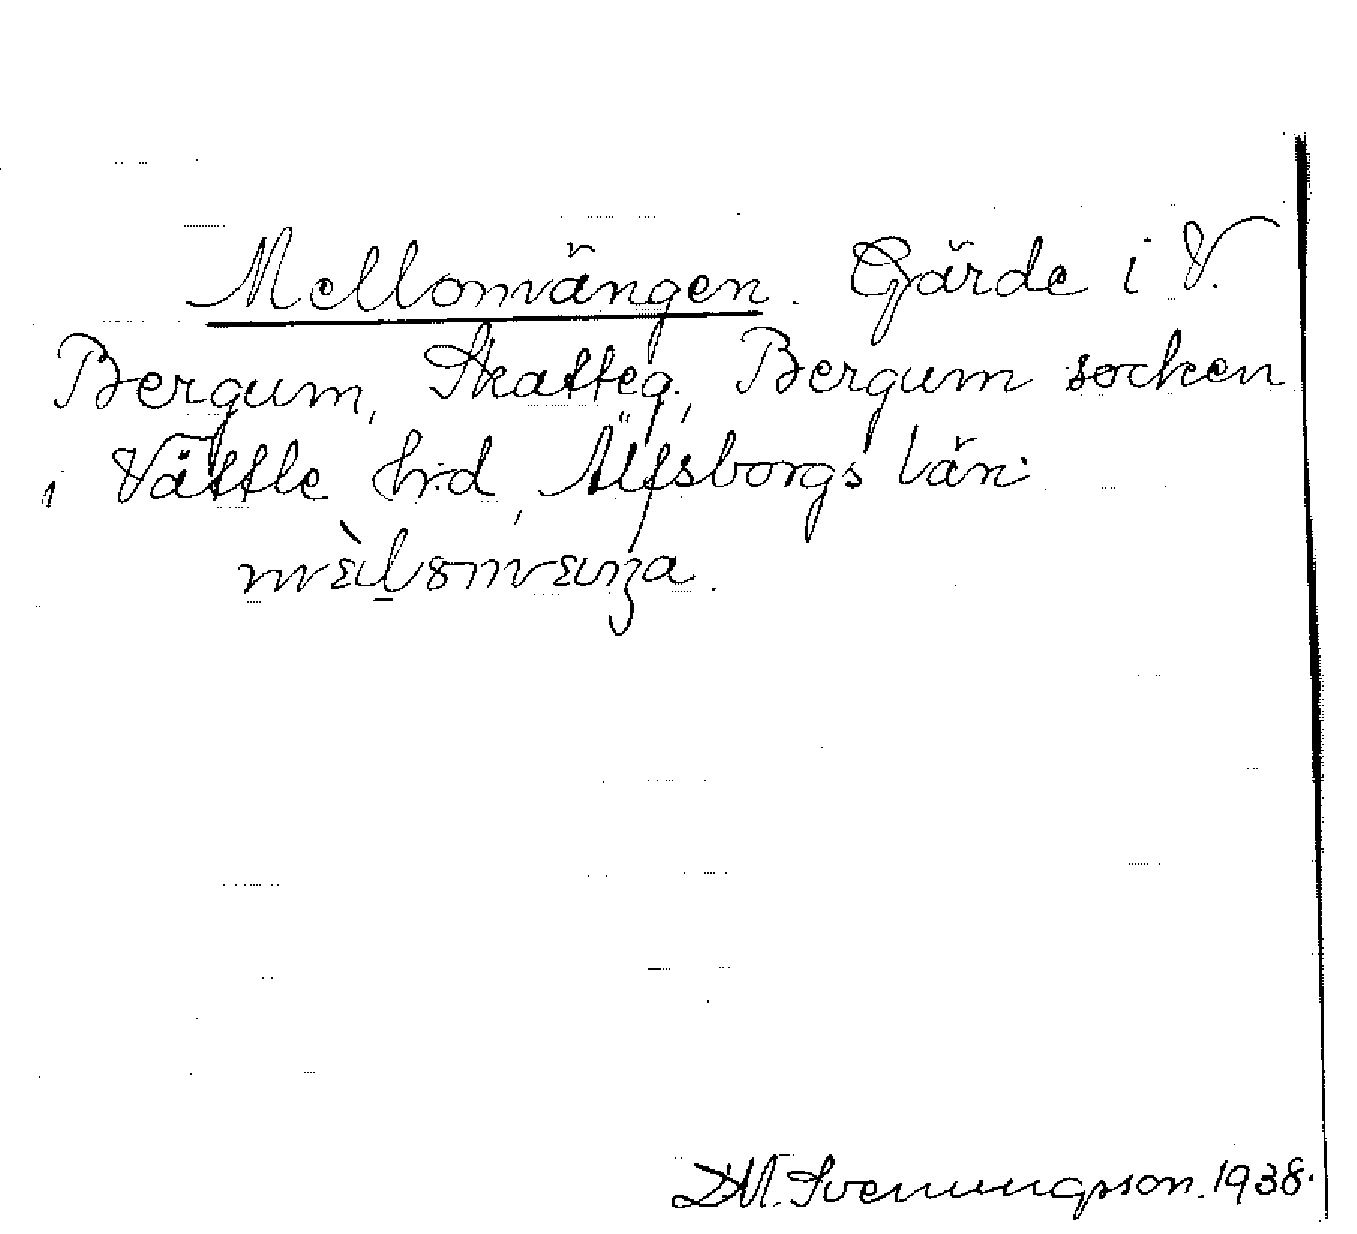 Mellomvängen. Gärde i V.
Bergum, Skatteg., Bergum socken
i Vättle hrd, Älfsborgs län.
D.M. Svenungsson. 1938.